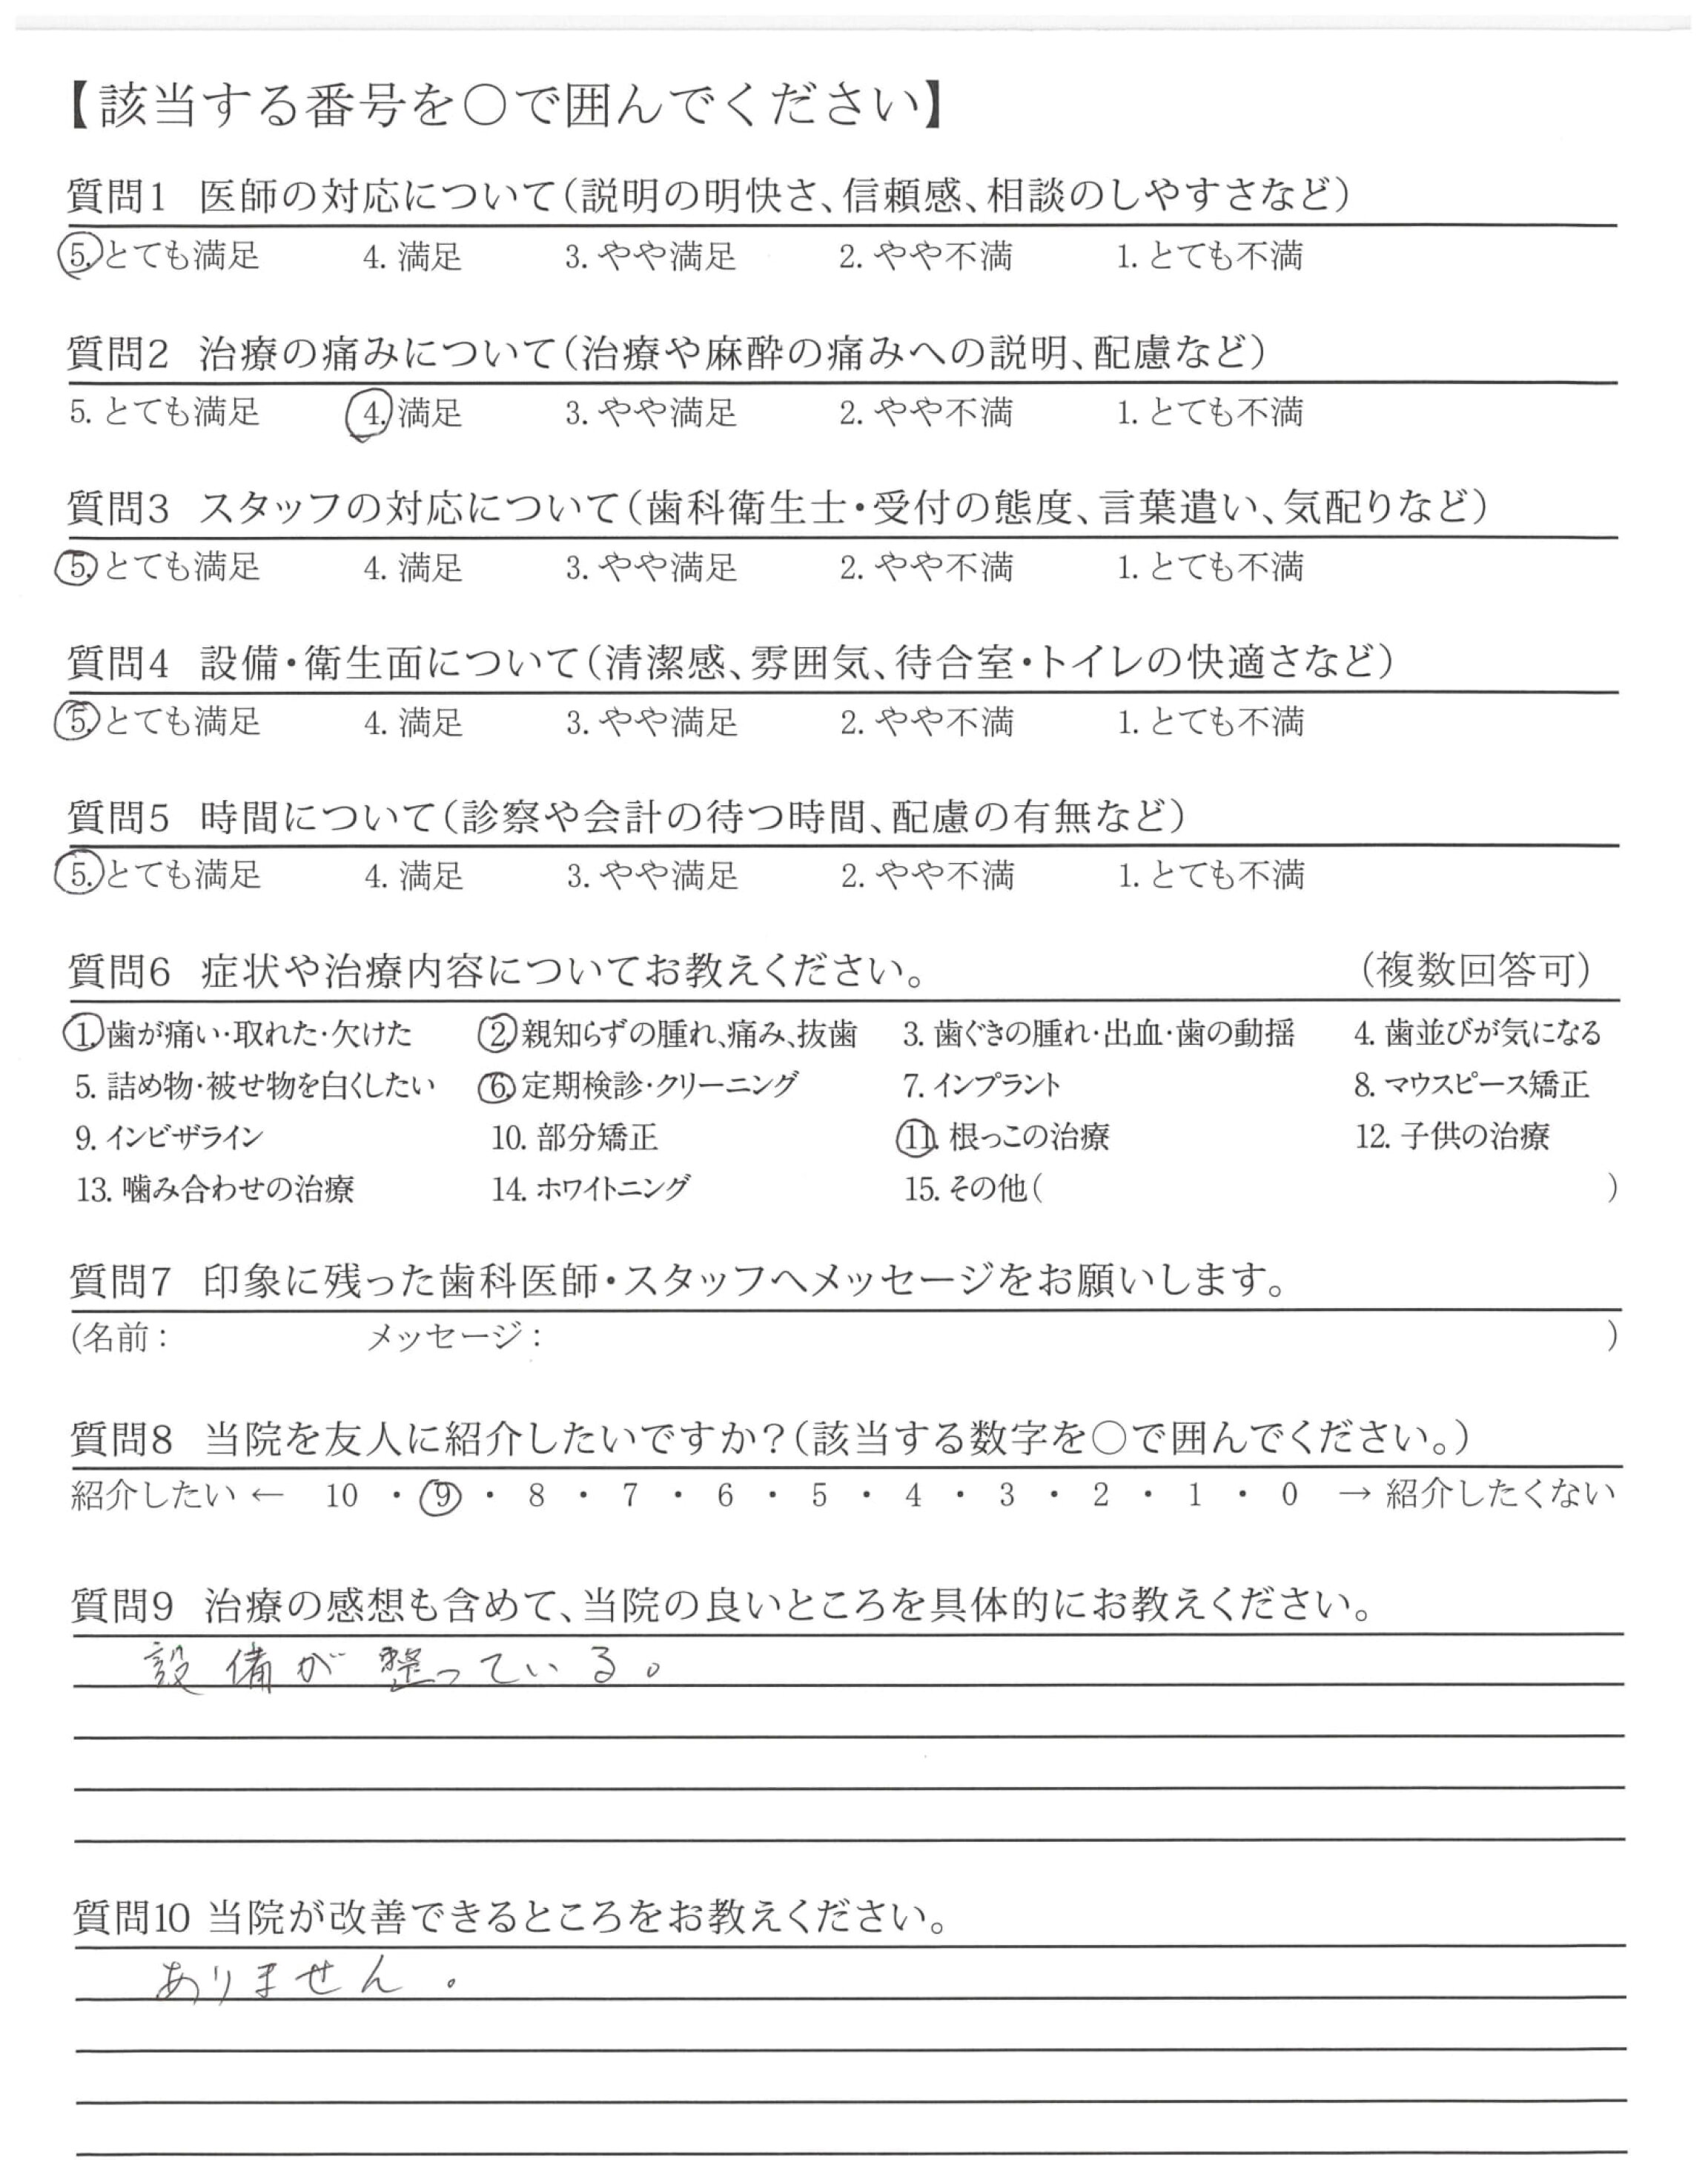 【該当する番号を〇で囲んでください】
質問1 医師の対応について(説明の明快さ、信頼感、相談のしやすさなど)
5. とても満足 4. 満足 3. やや満足 2. やや不満 1. とても不満
質問2 治療の痛みについて(治療や麻酔の痛みへの説明、配慮など)
5. とても満足 4. 満足 3. やや満足 2. やや不満 1. とても不満
質問3 スタッフの対応について(歯科衛生士・受付の態度、言葉遣い、気配りなど)
5. とても満足 4. 満足 3. やや満足 2. やや不満 1. とても不満
質問4 設備・衛生面について(清潔感、雰囲気、待合室・トイレの快適さなど)
5. とても満足 4. 満足 3. やや満足 2. やや不満 1. とても不満
質問5 時間について(診察や会計の待つ時間、配慮の有無など)
5. とても満足 4. 満足 3. やや満足 2. やや不満 1. とても不満
質問6 症状や治療内容についてお教えください。 (複数回答可)
1. 歯が痛い・取れた・欠けた 2. 親知らずの腫れ、痛み、抜歯 3. 歯ぐきの腫れ・出血・歯の動揺 4. 歯並びが気になる
5. 詰め物・被せ物を白くしたい 6. 定期検診・クリーニング 7. インプラント 8. マウスピース矯正
9. インビザライン 10. 部分矯正 11. 根っこの治療 12. 子供の治療
13. 噛み合わせの治療 14. ホワイトニング 15. その他( )
質問7 印象に残った歯科医師・スタッフへメッセージをお願いします。
(名前: メッセージ: )
質問8 当院を友人に紹介したいですか?(該当する数字を〇で囲んでください。)
紹介したい ← 10 ・ 9 ・ 8 ・ 7 ・ 6 ・ 5 ・ 4 ・ 3 ・ 2 ・ 1 ・ 0 → 紹介したくない
質問9 治療の感想も含めて、当院の良いところを具体的にお教えください。
設備が整っている。
質問10 当院が改善できるところをお教えください。
ありません。